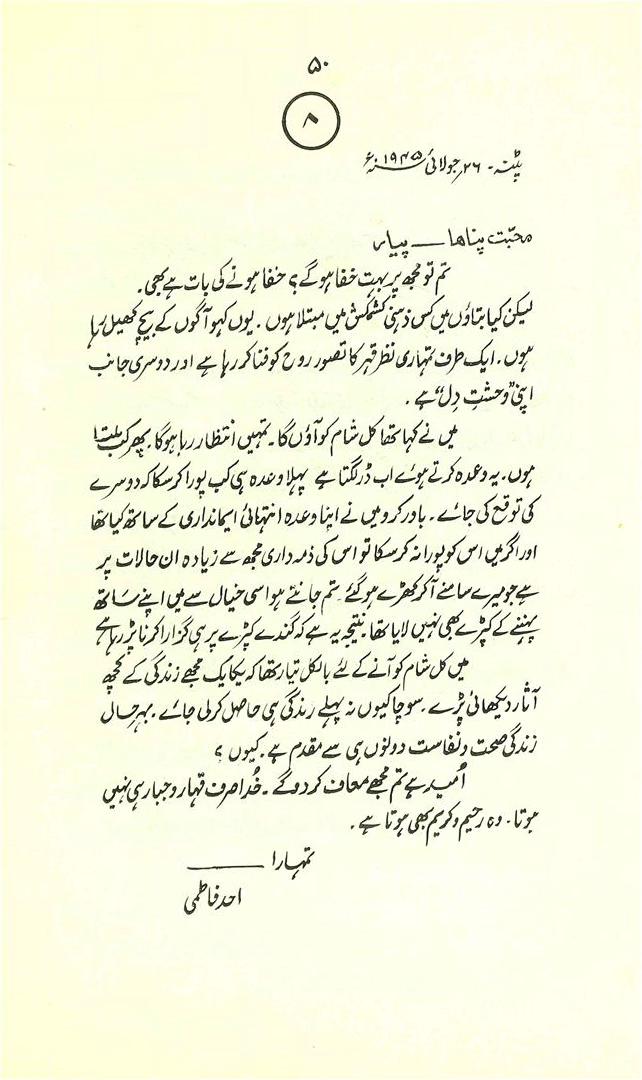 ۵۰
۸
پٹنہ ۔ ۲۶؍جولائی ۱۹۴۵ء
محبّت پناها ــــ پیار
تم تو مجھ پر بہت خفا ہوگے؟ خفا ہونے کی بات ہے بھی۔
لیکن کیا بتاؤں میں کس ذہنی کشمکش میں مبتلا ہوں۔ یوں کہو آگوں کے بیچ کھیل رہا
ہوں۔ ایک طرف تمہاری نظر قہر کا تصور روح کو فنا کر رہا ہے اور دوسری جانب
اپنی "وحشتِ دل" ہے۔
میں نے کہا تھا کل شام کو آؤں گا۔ تمہیں انتظار رہا ہوگا۔ پھر کب ملتا
ہوں۔ یہ وعدہ کرتے ہوئے اب ڈر لگتا ہے پہلا وعدہ ہی کب پورا کر سکا کہ دوسرے
کی توقع کی جائے۔ باور کرو میں نے اپنا وعدہ انتہائی ایمانداری کے ساتھ کیا تھا
اور اگر میں اس کو پورا نہ کر سکا تو اس کی ذمہ داری مجھ سے زیادہ ان حالات پر
ہے جو میرے سامنے آکر کھڑے ہوگئے۔ تم جانتے ہو اسی خیال سے میں اپنے ساتھ
پہننے کے کپڑے بھی نہیں لایا تھا۔ نتیجہ یہ ہے کہ گندے کپڑے پر ہی گزارا کرنا پڑ رہا ہے
میں کل شام کو آنے کے لئے بالکل تیار تھا کہ یکایک مجھے زندگی کے کچھ
آثار دیکھائی پڑے۔ سوچا کیوں نہ پہلے زندگی ہی حاصل کرلی جائے۔ بہرحال
زندگی صحت و نفاست دونوں ہی سے مقدم ہے۔ کیوں؟
اُمید ہے تم مجھے معاف کر دوگے۔ خُدا صرف قہار و جبار ہی نہیں
ہوتا۔ وہ رحیم و کریم بھی ہوتا ہے۔
تمہارا ــــــــ
احد فاطمی